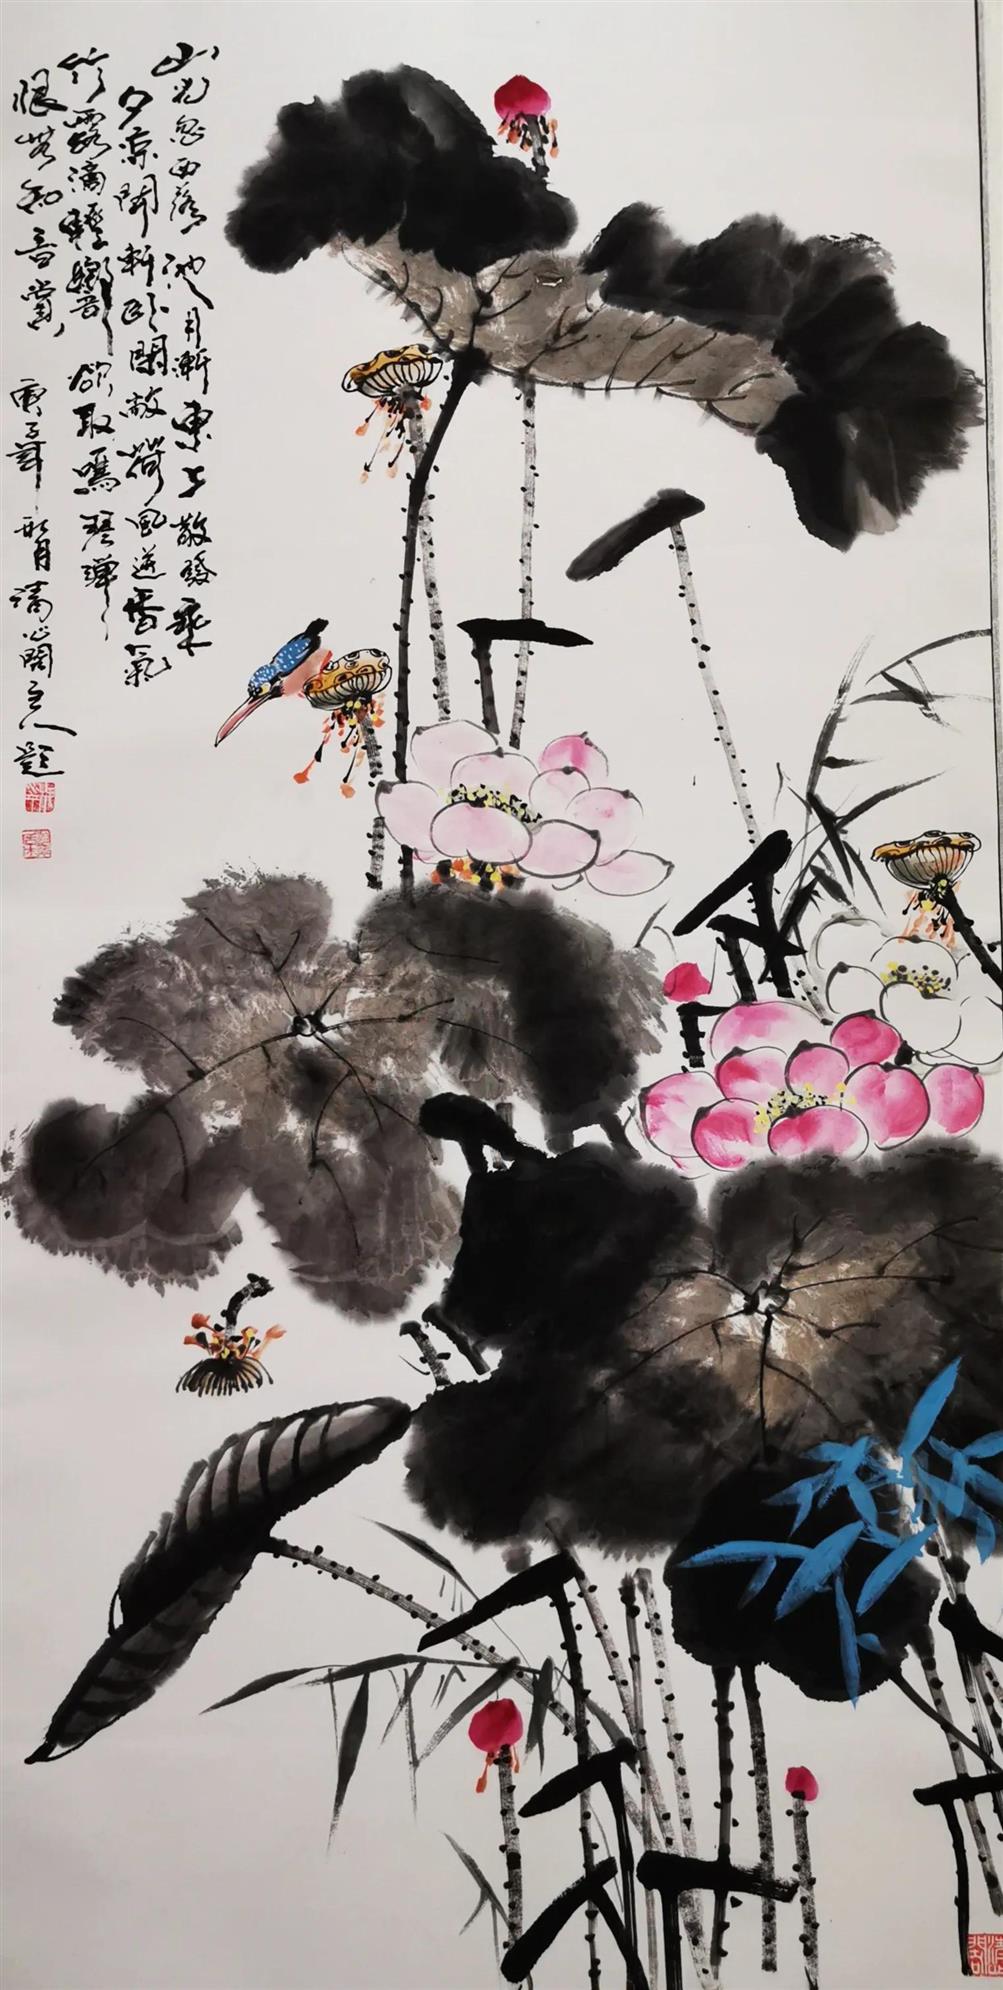 山光忽西落池月漸東上散發乘
夕涼開軒臥閑敞荷風送香氣
竹露滴輕響欲取鳴琴彈
恨無知音賞庚子年月清心閣主人題